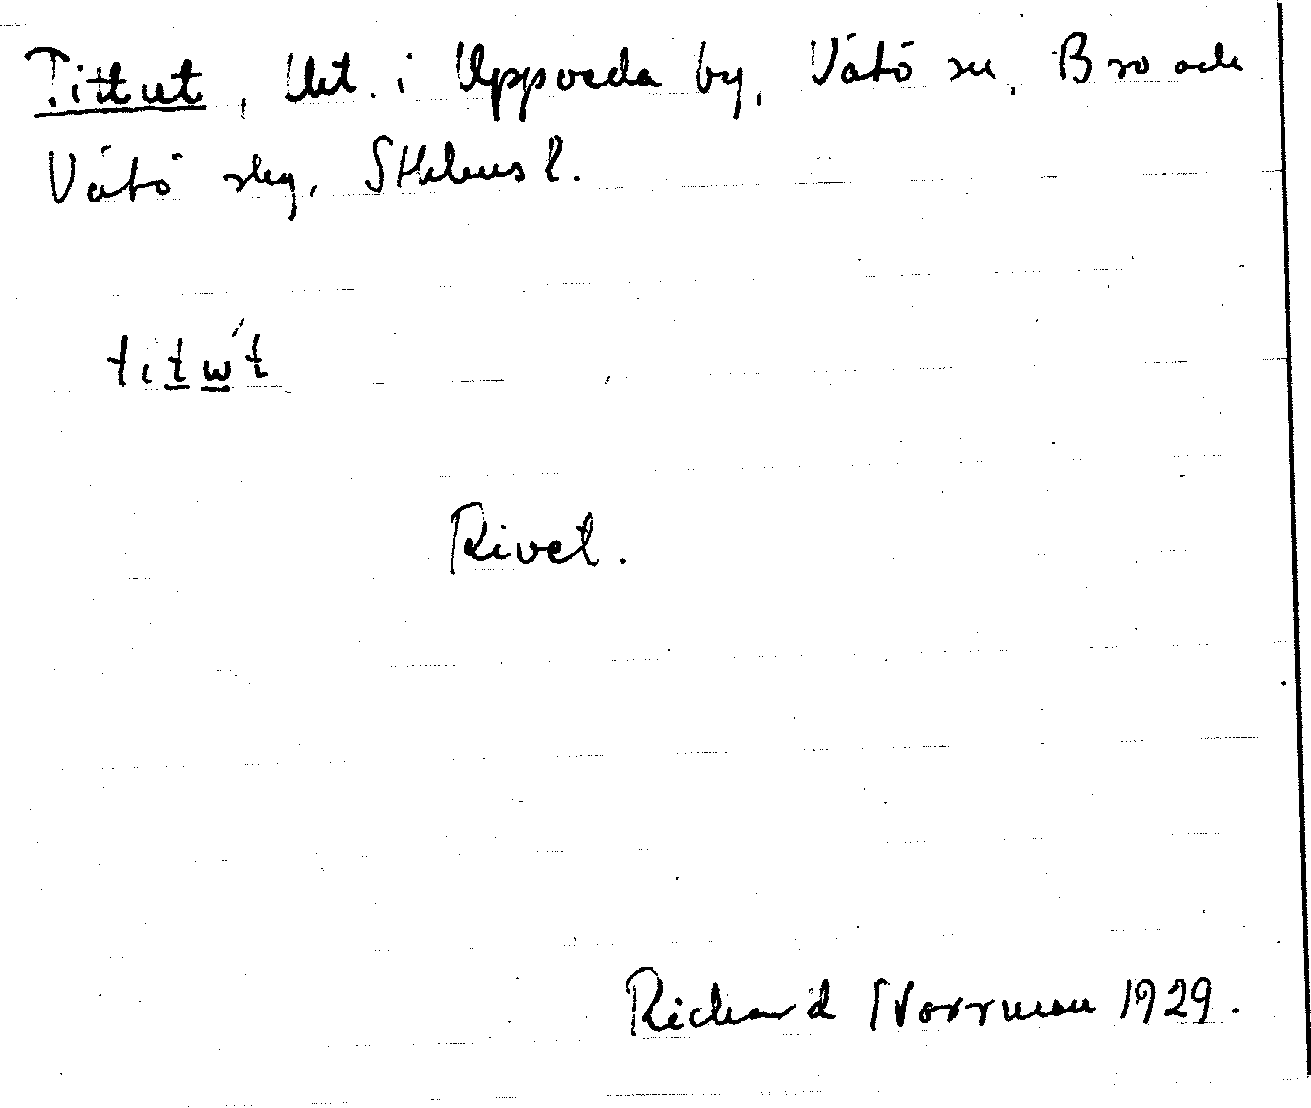 Tittut, lht. i Uppveda by, Vätö sn, Bro och
Vätö skg, Sthlms l.
titw't
Rivet.
Richard Norrman 1929.